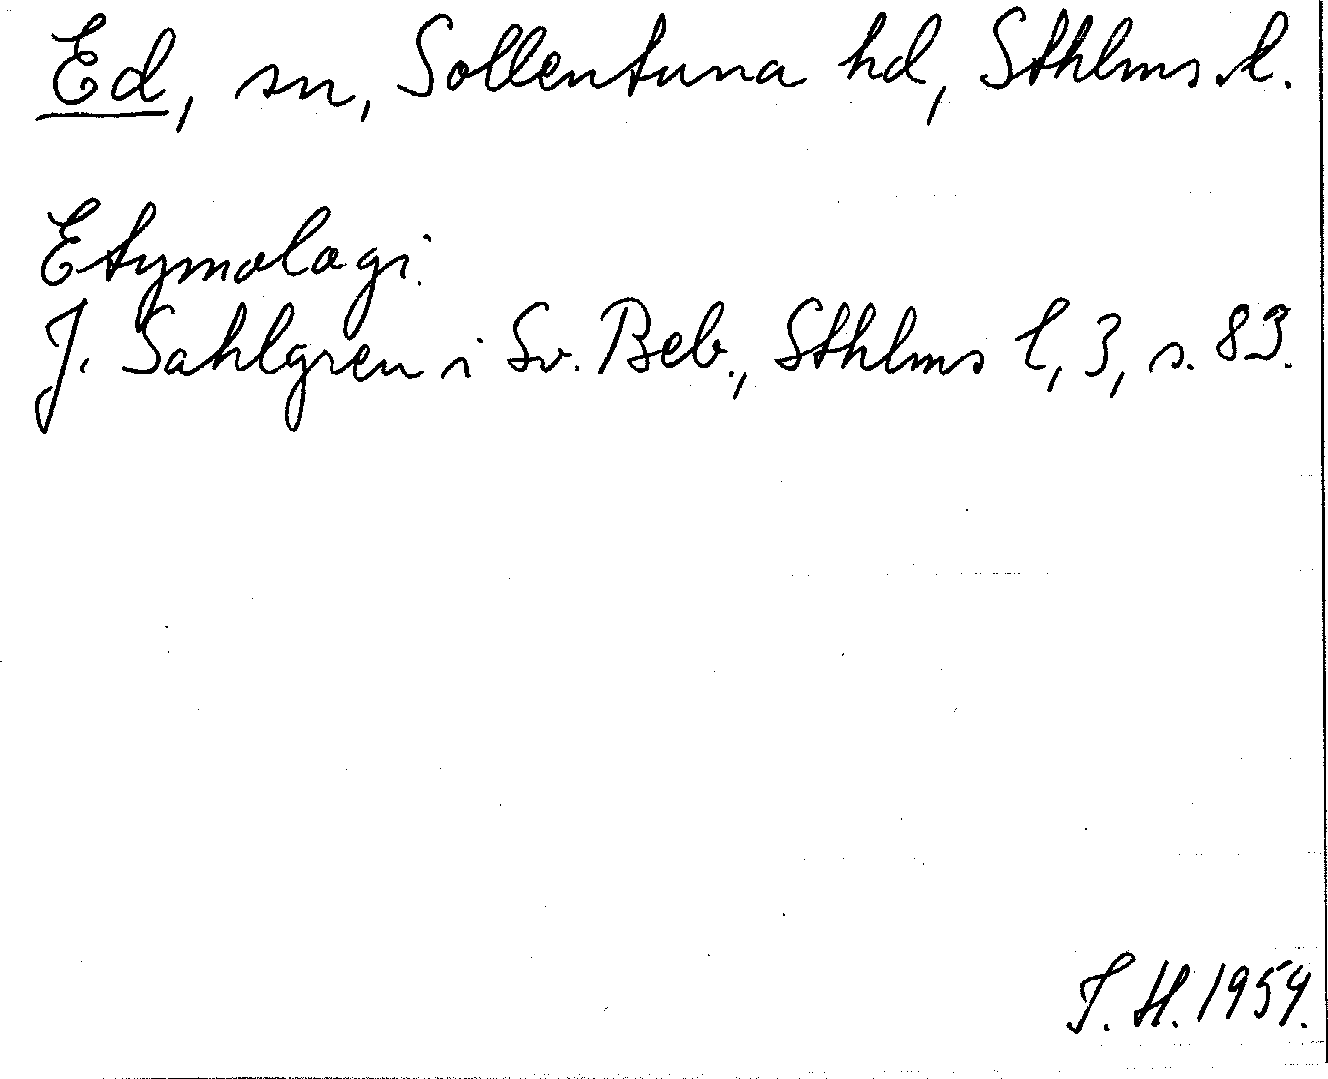 Ed, sn, Sollentuna hd, Sthlms l.
Etymologi.
J. Sahlgren i Sv. Beb., Sthlms l, 3, s. 83.
T. H. 1959.